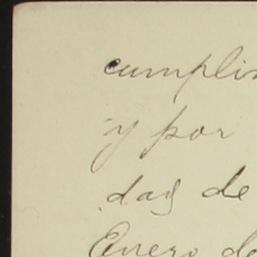 cumplin
y por
dad de
Enero de